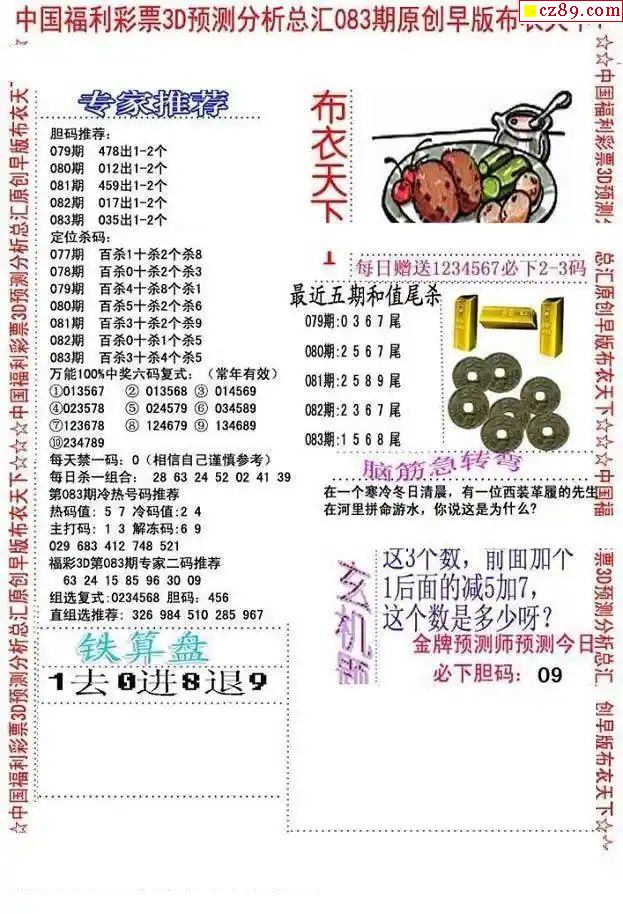 中国福利彩票3D预测分析总汇083期原创早版布衣天下
cz89.com
专家推荐
胆码推荐:
079期 478出1-2个
080期 012出1-2个
081期 459出1-2个
082期 017出1-2个
083期 035出1-2个
定位杀码:
077期 百杀1十杀2个杀8
078期 百杀0十杀2个杀3
079期 百杀4十杀8个杀1
080期 百杀5十杀2个杀6
081期 百杀3十杀2个杀9
082期 百杀0十杀1个杀5
083期 百杀3十杀4个杀5
万能100%中奖六码复式:(常年有效)
①013567 ②013568 ③014569
④023578 ⑤024579 ⑥034589
⑦123678 ⑧124679 ⑨134689
⑩234789
每天禁一码:0(相信自己谨慎参考)
每日杀一组合: 28 63 24 52 02 41 39
第083期冷热号码推荐
热码值:5 7 冷码值:2 4
主打码:1 3 解冻码:6 9
029 683 412 748 521
福彩3D第083期专家二码推荐
63 24 15 85 96 30 09
组选复式:0234568 胆码:456
直组选推荐:326 984 510 285 967
铁算盘
1去0进8退9
布衣天下
1
每日赠送1234567必下2-3码
最近五期和值尾杀
079期:0 3 6 7 尾
080期:2 5 6 7 尾
081期:2 5 8 9 尾
082期:2 3 6 7 尾
083期:1 5 6 8 尾
脑筋急转弯
在一个寒冷冬日清晨,有一位西装革履的先生
在河里拼命游水,你说这是为什么?
玄机
这3个数,前面加个
1后面的减5加7,
这个数是多少呀?
金牌预测师预测今日
必下胆码: 09
☆中国福利彩票3D预测分析总汇原创早版布衣天下☆☆☆中国福利彩票3D预测分析总汇原创早版布衣天
☆☆中国福利彩票3D预测分
总汇原创早版布衣天下☆☆☆中国福
票3D预测分析总汇
创早版布衣天下☆☆